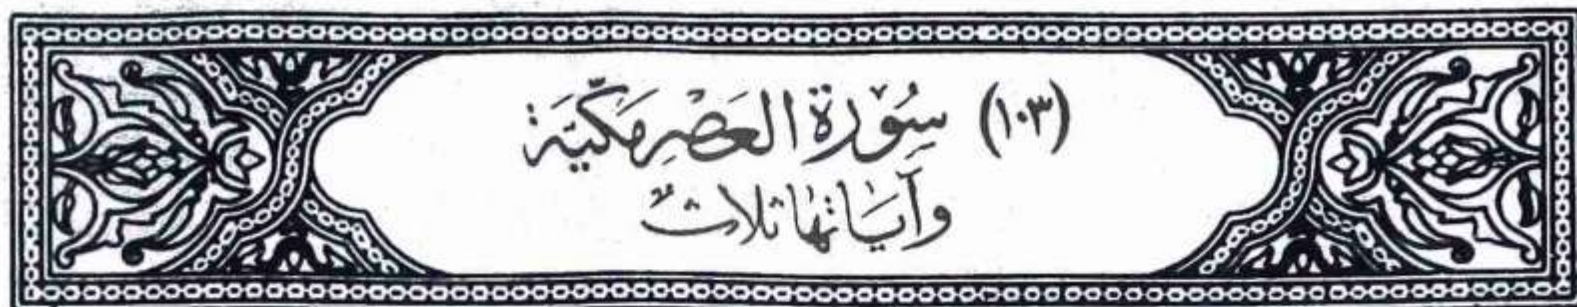 (١٠٣) سُوْرَة العَصْرِ مَكِّيَّة
وآيَاتهَا ثلاثٌ